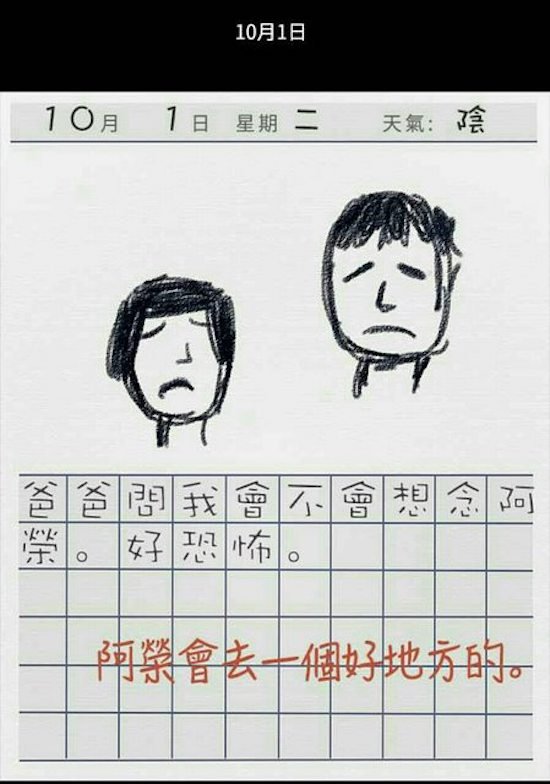 10月1日
10月 1日 星期二 天氣: 陰
爸爸問我會不會想念阿
榮。好恐怖。
阿榮會去一個好地方的。